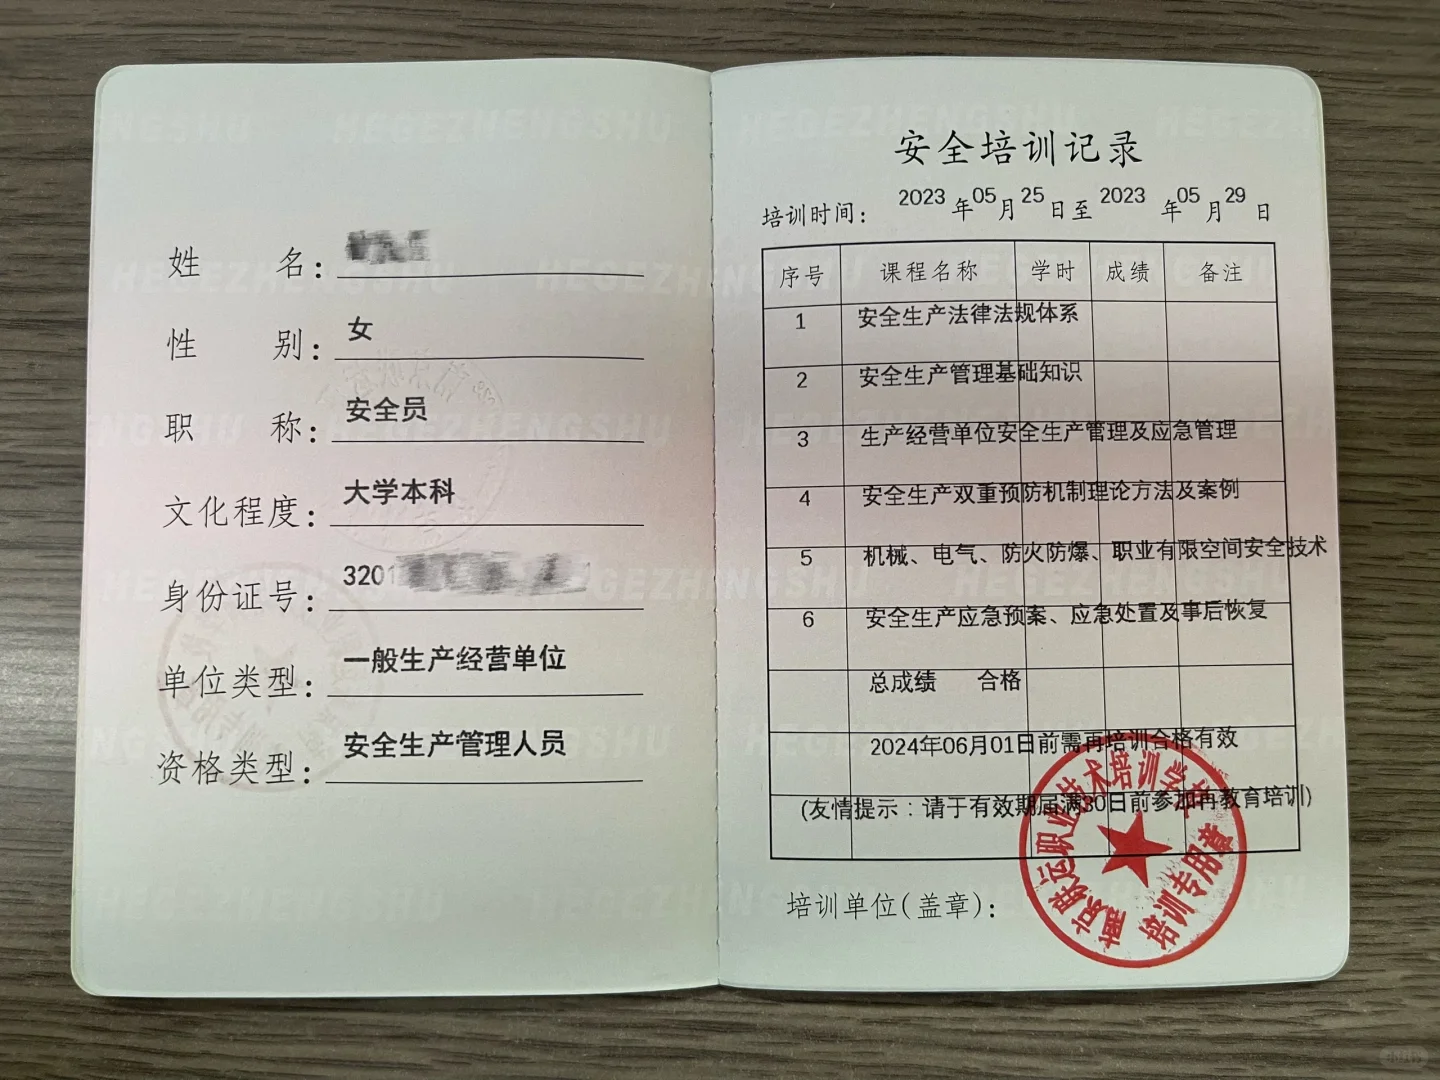 姓名：
性别：女
职称：安全员
文化程度：大学本科
身份证号：3201
单位类型：一般生产经营单位
资格类型：安全生产管理人员
安全培训记录
培训时间：2023年05月25日至2023年05月29日
序号 课程名称 学时 成绩 备注
1 安全生产法律法规体系
2 安全生产管理基础知识
3 生产经营单位安全生产管理及应急管理
4 安全生产双重预防机制理论方法及案例
5 机械、电气、防火防爆、职业有限空间安全技术
6 安全生产应急预案、应急处置及事后恢复
总成绩 合格
2024年06月01日前需再培训合格有效
(友情提示：请于有效期届满30日前参加再教育培训)
培训单位(盖章)：
联运职业技术培训学校
培训专用章
HEGEZHENGSHU